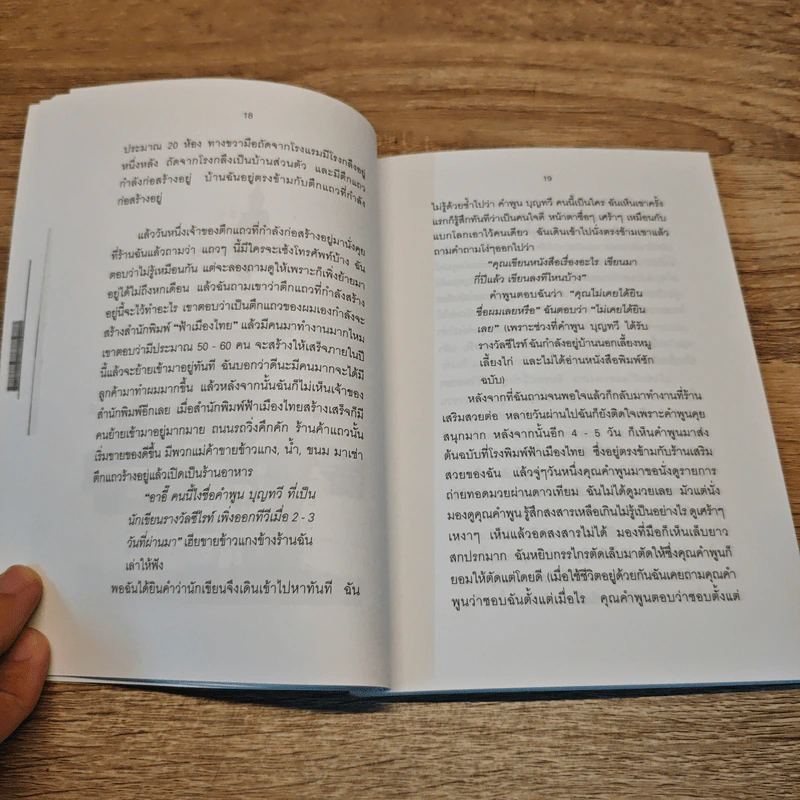 18
ประมาณ 20 ห้อง ทางขวามือถัดจากโรงแรมมีโรงกลึงอยู่
หนึ่งหลัง ถัดจากโรงกลึงเป็นบ้านส่วนตัว และมีตึกแถว
กำลังก่อสร้างอยู่ บ้านฉันอยู่ตรงข้ามกับตึกแถวที่กำลัง
ก่อสร้างอยู่
แล้ววันหนึ่งเจ้าของตึกแถวที่กำลังก่อสร้างอยู่มานั่งคุย
ที่ร้านฉันแล้วถามว่า แถวๆ นี้มีใครจะเซ้งโทรศัพท์บ้าง ฉัน
ตอบว่าไม่รู้เหมือนกัน แต่จะลองถามดูให้เพราะก็เพิ่งย้ายมา
อยู่ได้ไม่ถึงหกเดือน แล้วฉันถามเขาว่าตึกแถวที่กำลังสร้าง
อยู่นี้จะไว้ทำอะไร เขาตอบว่าเป็นตึกแถวของผมเองกำลังจะ
สร้างสำนักพิมพ์ "ฟ้าเมืองไทย" แล้วมีคนมาทำงานมากไหม
เขาตอบว่ามีประมาณ 50 - 60 คน จะสร้างให้เสร็จภายในปี
นี้แล้วจะย้ายเข้ามาอยู่ทันที ฉันบอกว่าดีนะมีคนมากจะได้มี
ลูกค้ามาทำผมมากขึ้น แล้วหลังจากนั้นฉันก็ไม่เห็นเจ้าของ
สำนักพิมพ์อีกเลย เมื่อสำนักพิมพ์ฟ้าเมืองไทยสร้างเสร็จก็มี
คนย้ายเข้ามาอยู่มากมาย ถนนรถวิ่งคึกคัก ร้านค้าแถวนั้น
เริ่มขายของดีขึ้น มีพวกแม่ค้าขายข้าวแกง, น้ำ, ขนม มาเช่า
ตึกแถวร้างอยู่แล้วเปิดเป็นร้านอาหาร
"อาอี๊ คนนี้ไงชื่อคำพูน บุญทวี ที่เป็น
นักเขียนรางวัลซีไรท์ เพิ่งออกทีวีเมื่อ 2 - 3
วันที่ผ่านมา" เฮียขายข้าวแกงข้างร้านฉัน
เล่าให้ฟัง
พอฉันได้ยินคำว่านักเขียนจึงเดินเข้าไปหาทันที ฉัน
19
ไม่รู้ด้วยซ้ำไปว่า คำพูน บุญทวี คนนี้เป็นใคร ฉันเห็นเขาครั้ง
แรกก็รู้สึกทันทีว่าเป็นคนใจดี หน้าตาซื่อๆ เศร้าๆ เหมือนกับ
แบกโลกเอาไว้คนเดียว ฉันเดินเข้าไปนั่งตรงข้ามเขาแล้ว
ถามคำถามโง่ๆออกไปว่า
"คุณเขียนหนังสือเรื่องอะไร เขียนมา
กี่ปีแล้ว เขียนลงที่ไหนบ้าง"
คำพูนตอบฉันว่า "คุณไม่เคยได้ยิน
ชื่อผมเลยหรือ" ฉันตอบว่า "ไม่เคยได้ยิน
เลย" (เพราะช่วงที่คำพูน บุญทวี ได้รับ
รางวัลซีไรท์ ฉันกำลังอยู่บ้านนอกเลี้ยงหมู
เลี้ยงไก่ และไม่ได้อ่านหนังสือพิมพ์ซัก
ฉบับ)
หลังจากที่ฉันถามจนพอใจแล้วก็กลับมาทำงานที่ร้าน
เสริมสวยต่อ หลายวันผ่านไปฉันก็ยังติดใจเพราะคำพูนคุย
สนุกมาก หลังจากนั้นอีก 4 - 5 วัน ก็เห็นคำพูนมาส่ง
ต้นฉบับที่โรงพิมพ์ฟ้าเมืองไทย ซึ่งอยู่ตรงข้ามกับร้านเสริม
สวยของฉัน แล้วจู่ๆวันหนึ่งคุณคำพูนมาขอนั่งดูรายการ
ถ่ายทอดมวยผ่านดาวเทียม ฉันไม่ได้ดูมวยเลย มัวแต่นั่ง
มองดูคุณคำพูน รู้สึกสงสารเหลือเกินไม่รู้เป็นอย่างไร ดูเศร้าๆ
เหงาๆ เห็นแล้วอดสงสารไม่ได้ มองที่มือก็เห็นเล็บยาว
สกปรกมาก ฉันหยิบกรรไกรตัดเล็บมาตัดให้ซึ่งคุณคำพูนก็
ยอมให้ตัดแต่โดยดี (เมื่อใช้ชีวิตอยู่ด้วยกันฉันเคยถามคุณคำ
พูนว่าชอบฉันตั้งแต่เมื่อไร คุณคำพูนตอบว่าชอบตั้งแต่